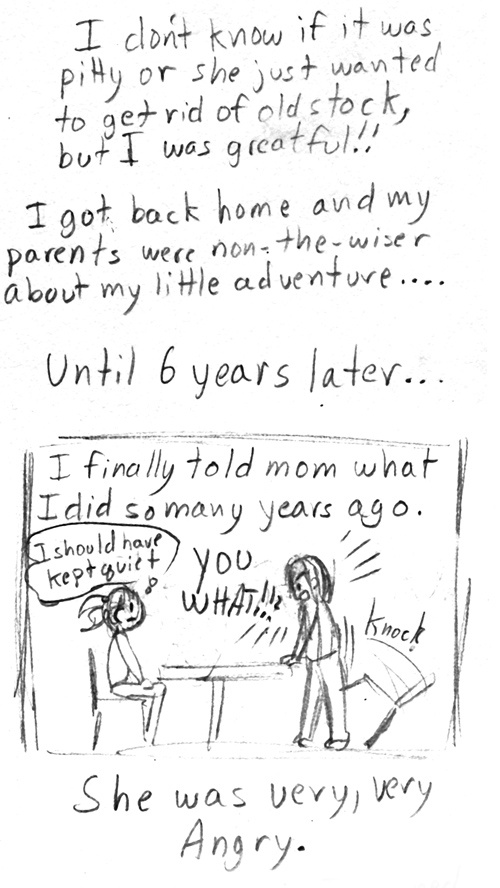 I don't know if it was
pitty or she just wanted
to get rid of old stock,
but I was greatful!!
I got back home and my
parents were non-the-wiser
about my little adventure....
Until 6 years later...
I finally told mom what
I did so many years ago.
I should have
kept quiet
YOU
WHAT!!!
Knock
She was very, very
Angry.